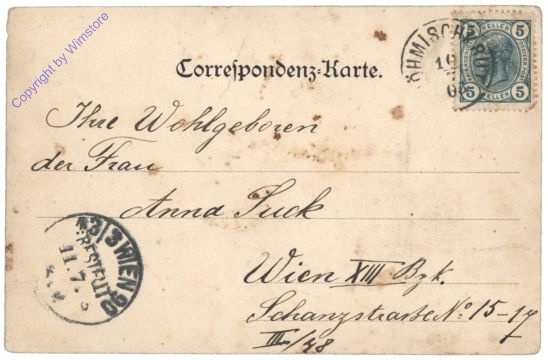 Copyright by Wimstore
Correspondenz=Karte.
5 HELLER 5
5 HELLER 5
Ihre Wohlgeboren
der Frau
Anna Fuck
Wien XIII Bzk.
Schanzstrasse No 15-17
III/48
13/3 WIEN 90
BESTELLT
11.7.